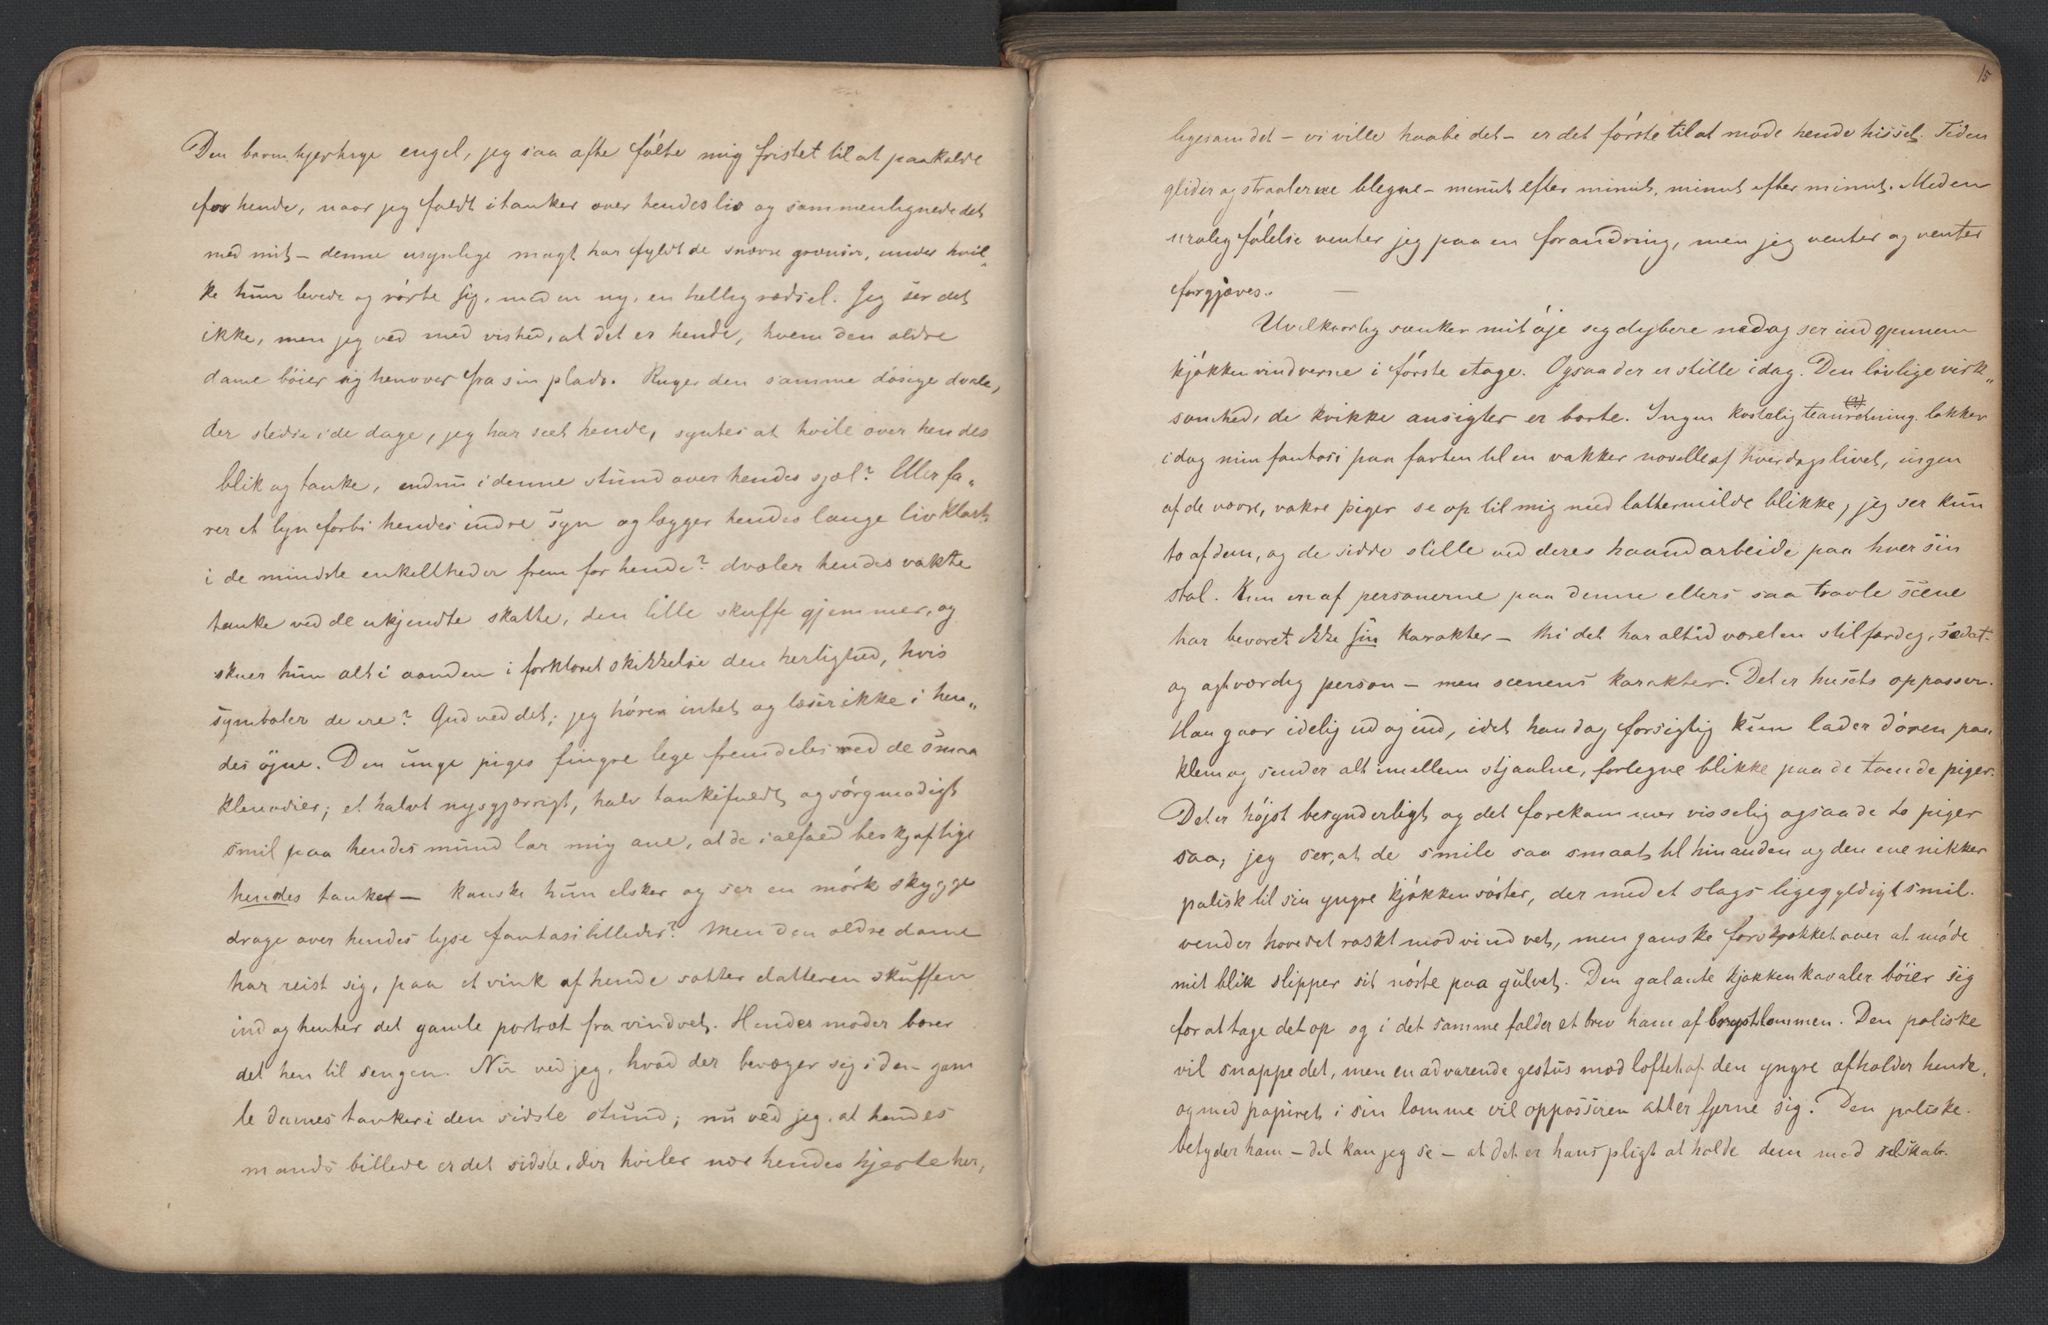 Den barmhjertige engel, jeg saa ofte følte mig fristet til at paakalde
for hende, naar jeg faldt i tanker over hendes liv og sammenlignede det
med mit – denne usynlige magt har fyldt de snævre grænser, under hvil„
ke hun levede og rørte sig, med en ny, en hellig rædsel. Jeg ser det
ikke, men jeg ved med vished, at det er hende, hvem den ældre
dame bøier sig henover fra sin plads. Ruger den samme døsige dvale,
der stedse i de dage, jeg har seet hende, syntes at hvile over hendes
blik og tanke, endnu i denne stund over hendes sjæl? Eller fa„
rer et lyn forbi hendes indre syn og lægger hendes lange liv klart
i de mindste enkeltheder frem for hende? dvæler hendes vakte
tanke ved de ukjendte skatte, den lille skuffe gjemmer, og
skuer hun alt i aanden i forklaret skikkelse den herlighed, hvis
symboler de ere? Gud ved det; jeg hører intet og læser ikke i hen„
des øjne. Den unge piges fingre lege fremdeles med de smaa
klenodier; et halvt nysgjærrigt, halv tankefuldt og sørgmodigt
smil paa hendes mund lar mig ane, at de ialfald beskjæftige
hendes tanker – kanske hun elsker og ser en mørk skygge
drage over hendes lyse fantasibilleder? Men den ældre dame
har reist sig, paa et vink af hende sætter datteren skuffen
ind og henter det gamle portræt fra vinduet. Hendes moder bærer
det hen til sengen. Nu ved jeg, hvad der bevæger sig i den gam
le dames tanker i den sidste stund; nu ved jeg, at hendes
mands billede er det sidste, der hviler nær hendes hjerte her,
15
ligesom det – vi ville haabe det – er det første til at møde hende hisset. Tiden
glider og straalerne blegne – minut efter minut, minut efter minut. Med en
urolig følelse venter jeg paa en forandring, men jeg venter og venter
forgjæves. –
Uvilkaarlig sænker mit øje sig dybere ned og ser ind gjennem
kjøkkenvinduerne i første etage. Ogsaa der er stille idag. Den livlige virk„
somhed, de kvikke ansigter er borte. Ingen kostelig teanretning lokker
idag min fantasi paa farten til en vakker novelle af hverdagslivet, ingen
af de vævre, vakre piger se op til mig med lattermilde blikke, jeg ser kun
to af dem, og de sidde stille ved deres haandarbeide paa hver sin
stol. Kun en af personerne paa denne ellers saa travle scene
har bevaret ikke sin karakter – thi det har altid været en stilfærdig, sedat
og agtværdig person – men scenens karakter. Det er husets oppasser.
Han gaar idelig ud og ind, idet han dog forsigtig kun lader døren paa
klem og sender alt imellem stjaalne, forlegne blikke paa de tvende piger.
Det er højst besynderligt og det forekommer visselig ogsaa de to piger
saa, jeg ser, at de smile saa smaat til hinanden og den ene nikker
polisk til sin yngre kjøkkensøster, der med et slags ligegyldigt smil
vender hovedet raskt mod vinduet, men ganske forskrækket over at møde
mit blik slipper sit nøste paa gulvet. Den galante kjøkkenkavaler bøier sig
for at tage det op og i det samme falder et brev ham af brystlommen. Den poliske
vil snappe det, men en advarende gestus mod loftet af den yngre afholder hende,
og med papiret i sin lomme vil oppasseren atter fjerne sig. Den poliske
betyder ham – det kan jeg se – at det er hans pligt at holde dem med selskab.